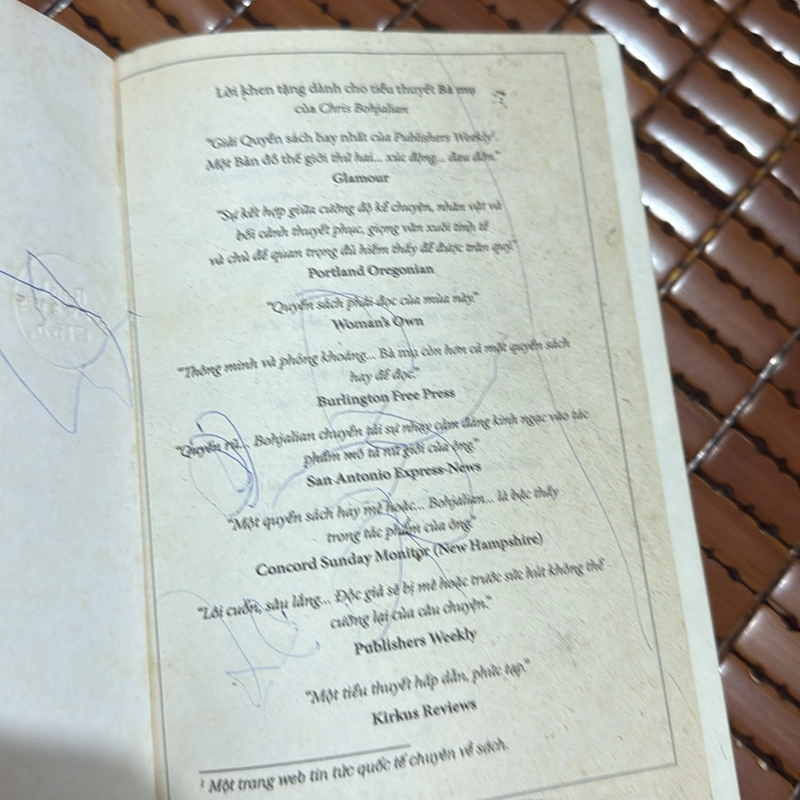 Lời khen tặng dành cho tiểu thuyết Bà mụ
của Chris Bohjalian
“Giải Quyển sách hay nhất của Publishers Weekly¹.
Một Bản đồ thế giới thứ hai... xúc động... đau đớn.”
Glamour
“Sự kết hợp giữa cường độ kể chuyện, nhân vật và
bối cảnh thuyết phục, giọng văn xuôi tinh tế
và chủ đề quan trọng đủ hiếm thấy để được trân quý.”
Portland Oregonian
“Quyển sách phải đọc của mùa này.”
Woman's Own
“Thông minh và phóng khoáng... Bà mụ còn hơn cả một quyển sách
hay để đọc.”
Burlington Free Press
“Quyến rũ... Bohjalian chuyển tải sự nhạy cảm đáng kinh ngạc vào tác
phẩm mô tả nữ giới của ông.”
San Antonio Express-News
“Một quyển sách hay mê hoặc... Bohjalian... là bậc thầy
trong tác phẩm của ông.”
Concord Sunday Monitor (New Hampshire)
“Lôi cuốn, sâu lắng... Độc giả sẽ bị mê hoặc trước sức hút không thể
cưỡng lại của câu chuyện.”
Publishers Weekly
“Một tiểu thuyết hấp dẫn, phức tạp.”
Kirkus Reviews
¹ Một trang web tin tức quốc tế chuyên về sách.